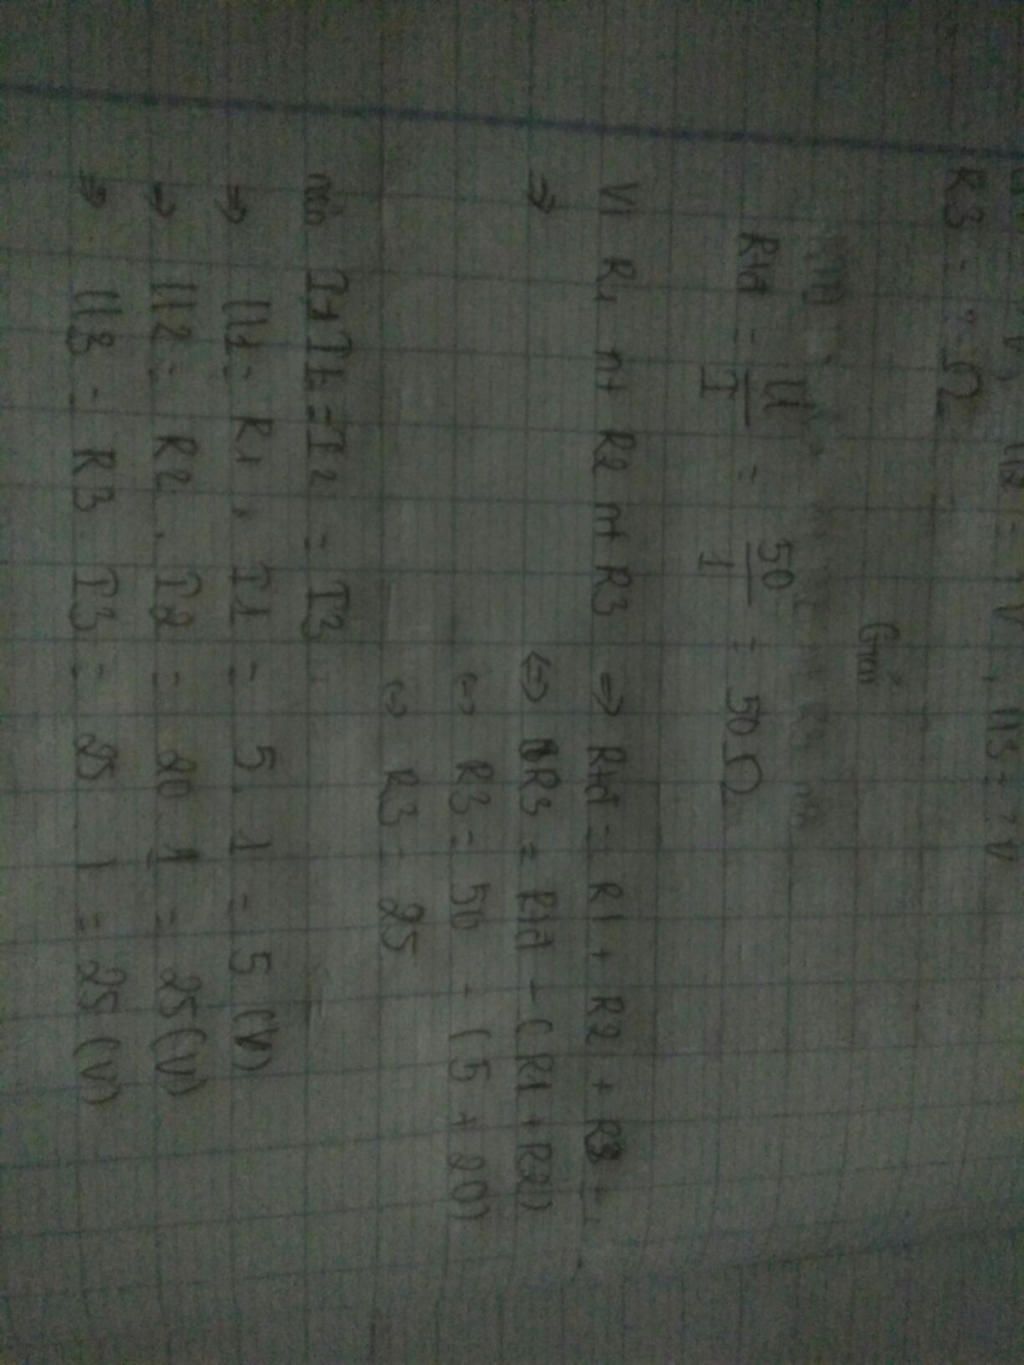 U2 = ? V, U3 = ? V
R3 = ? Ω
Giải
Rtđ = U/I = 50/1 = 50 Ω
Vì R1 nt R2 nt R3 => Rtđ = R1 + R2 + R3
=> <=> R3 = Rtđ - (R1 + R2)
<=> R3 = 50 - (5 + 20)
<=> R3 = 25
nên I1 = I2 = I3
=> U1 = R1 . I1 = 5. 1 = 5 (V)
=> U2 = R2 . I2 = 20 1 = 25 (V)
=> U3 = R3 . I3 = 25 1 = 25 (V)